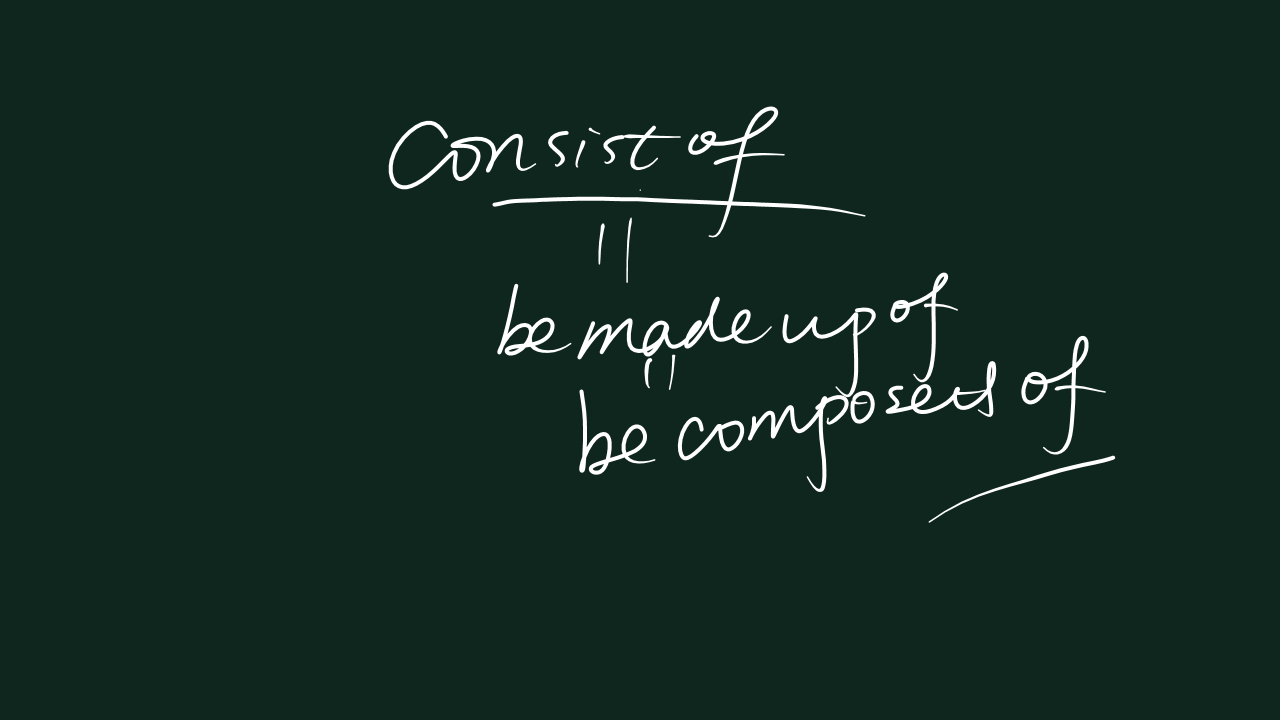 Consist of
||
be made up of
||
be composed of